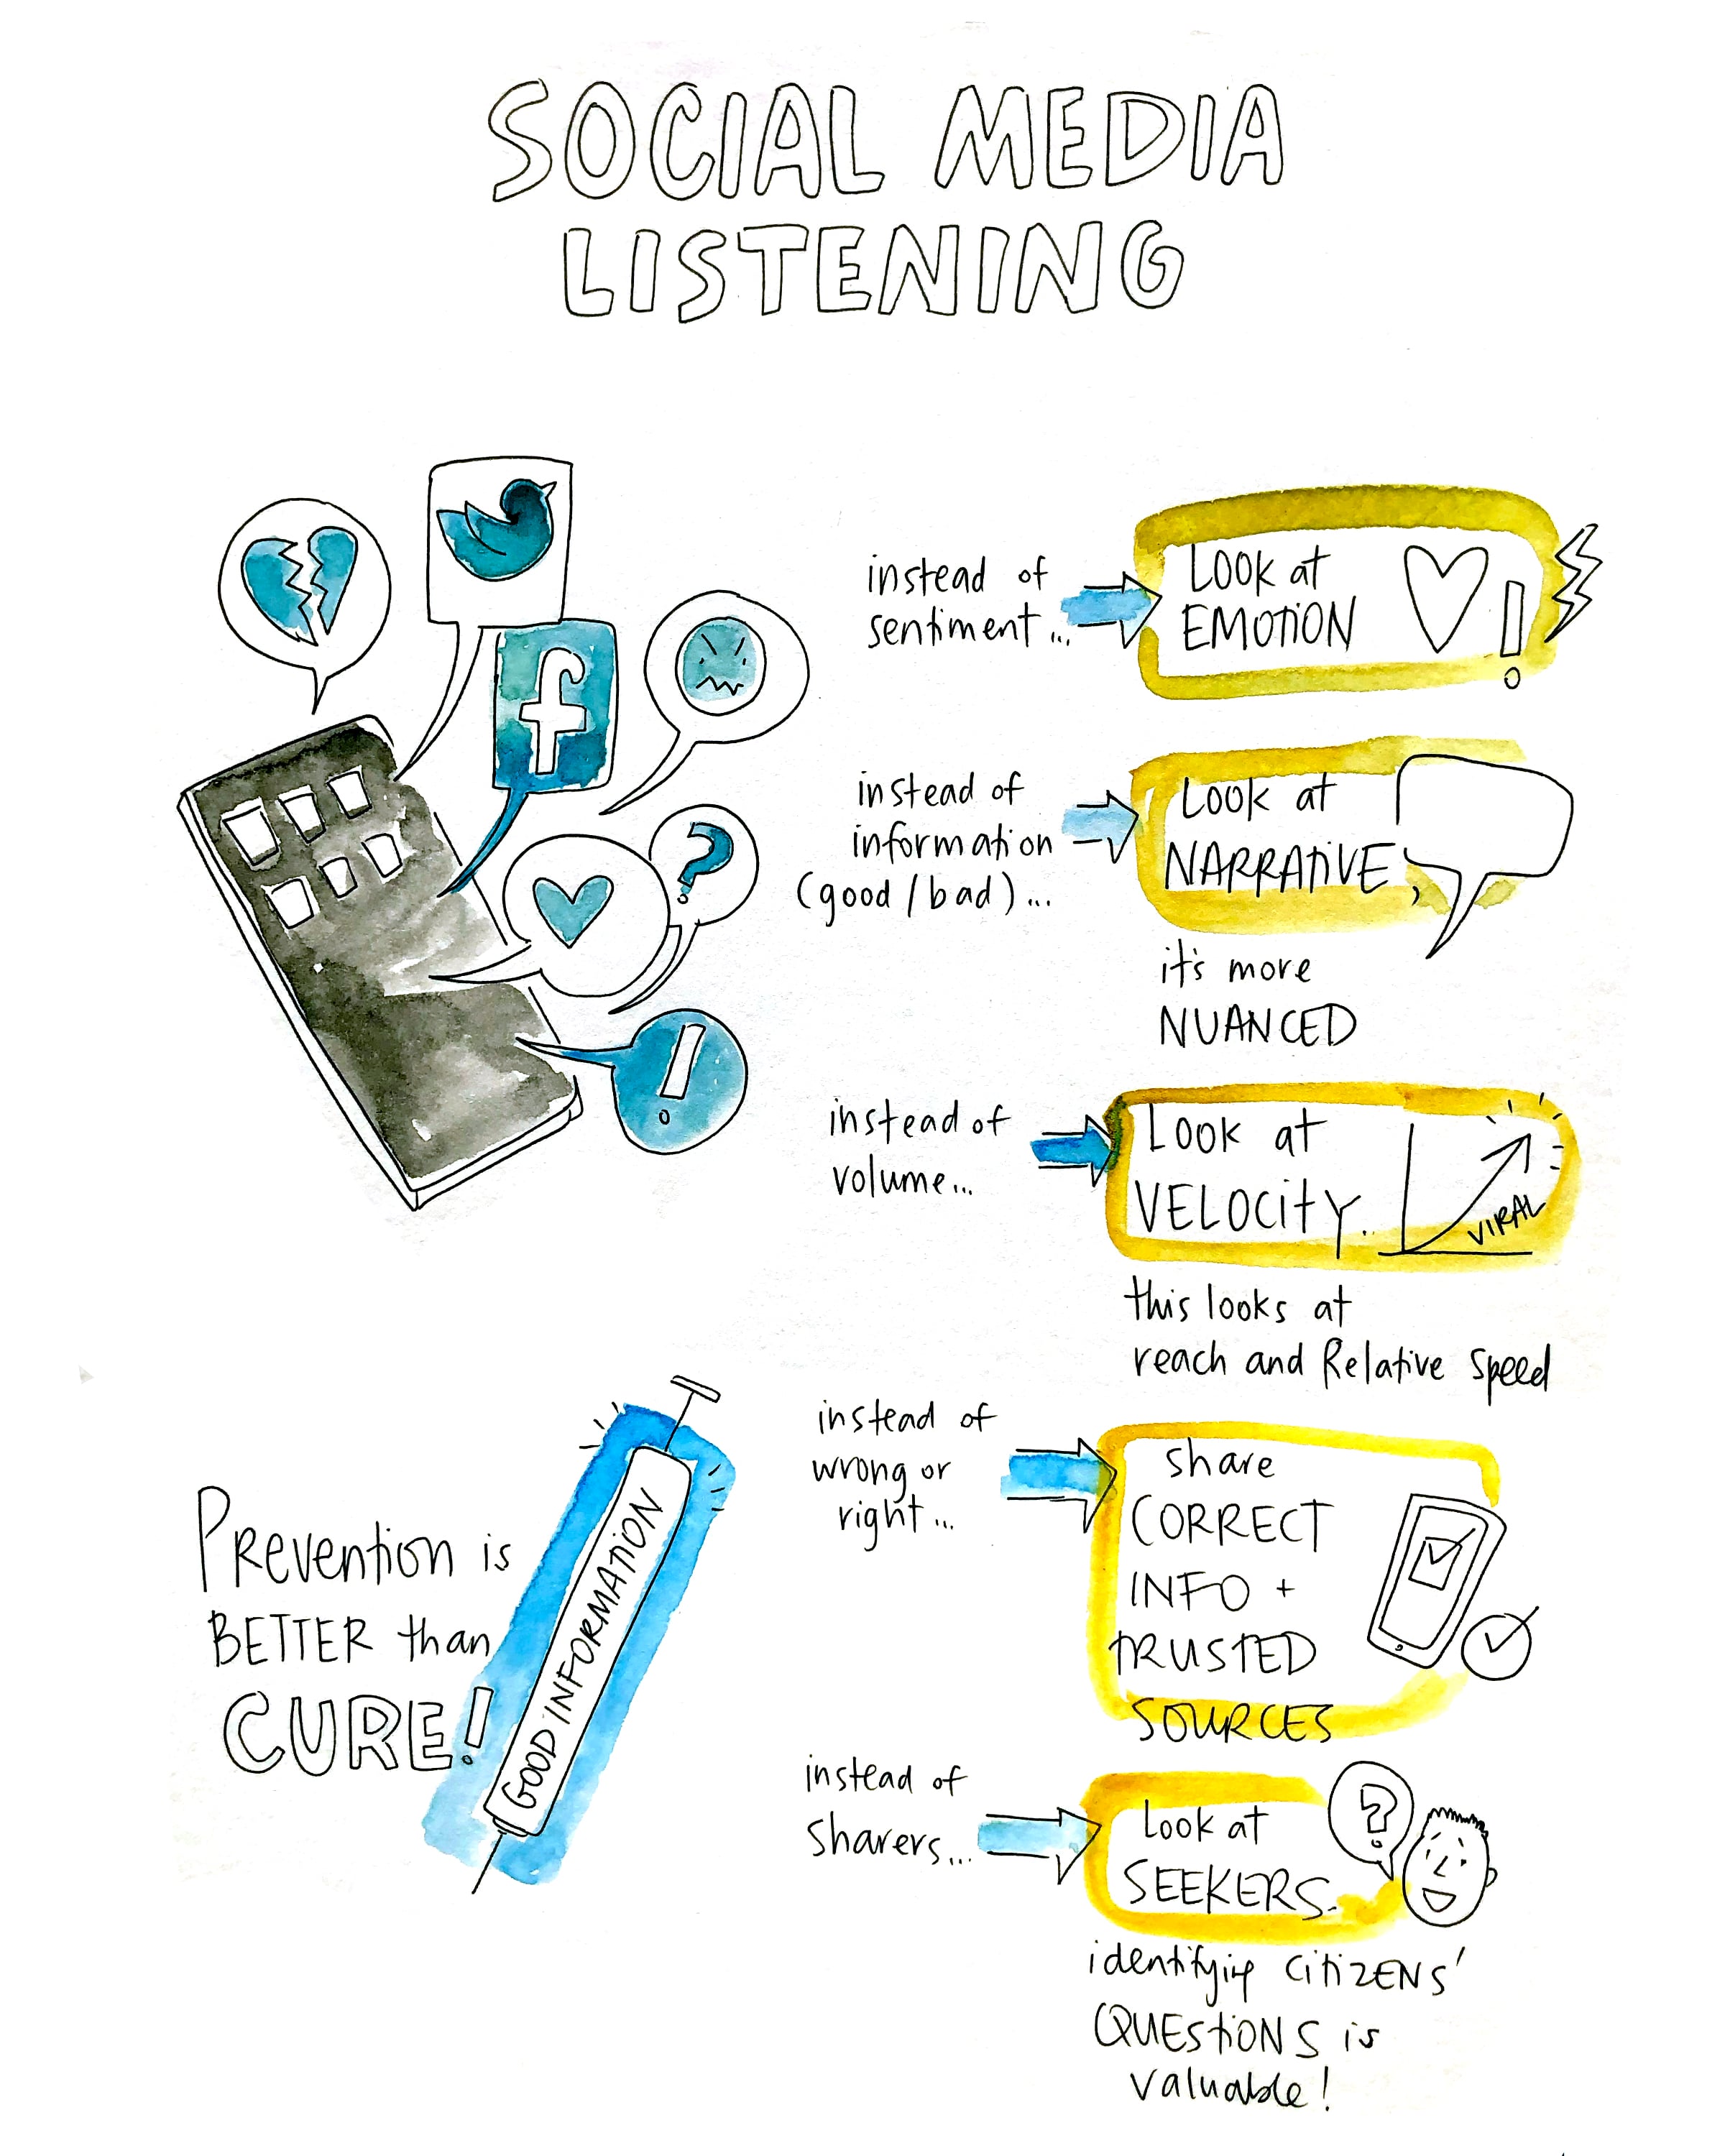 SOCIAL MEDIA
LISTENING
instead of
sentiment...
LOOK at
EMOTION
instead of
information
(good / bad)...
LOOK at
NARRATIVE,
it's more
NUANCED
instead of
volume...
LOOK at
VELOCITY..
VIRAL
this looks at
reach and Relative Speed
instead of
wrong or
right...
share
CORRECT
INFO +
TRUSTED
SOURCES
PREVENTION is
BETTER than
CURE!
GOOD INFORMATION
instead of
sharers...
LOOK at
SEEKERS.
identifying CITIZENS'
QUESTIONS is
valuable!